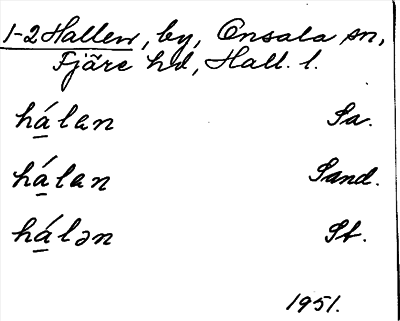 1-2 Hallen, by, Onsala sn,
Fjäre hd, Hall. l.
há̲lan Sa.
há̲lan Sand.
há̲lən St.
1951.